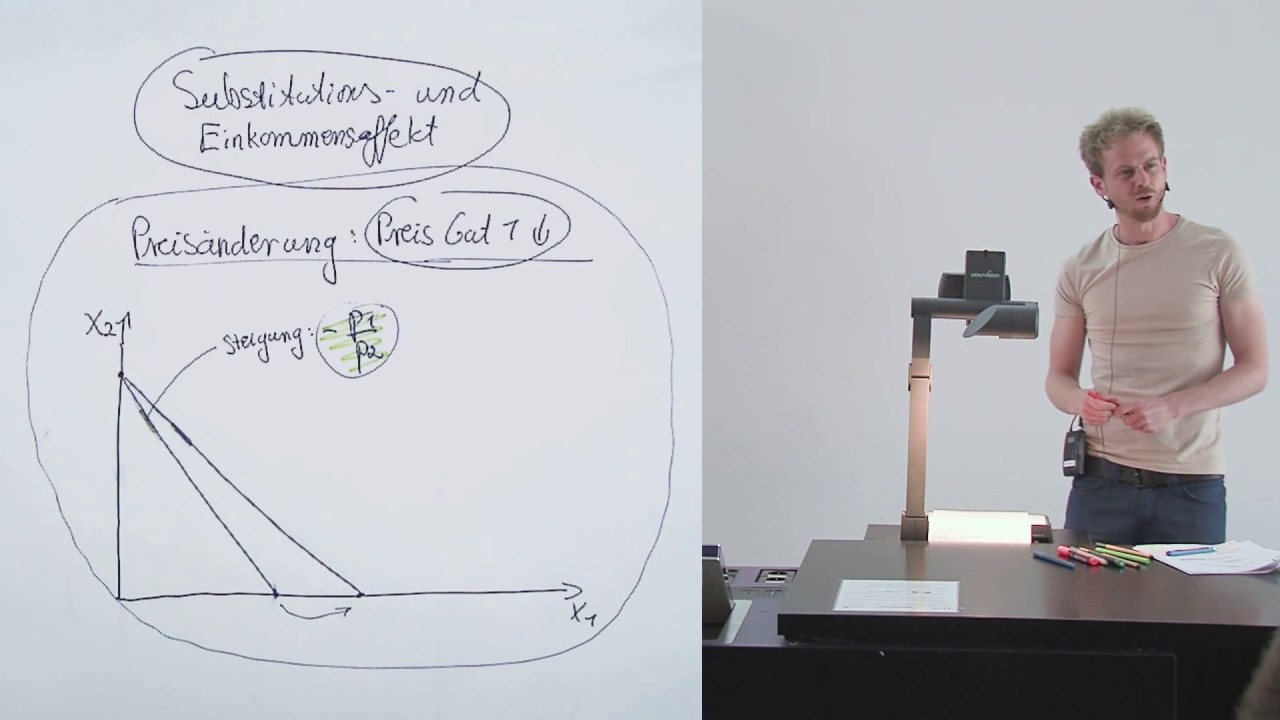 Substitutions- und
Einkommenseffekt
Preisänderung: Preis Gut 1 ↓
X2
Steigung: - P1
P2
X1
wolfvision